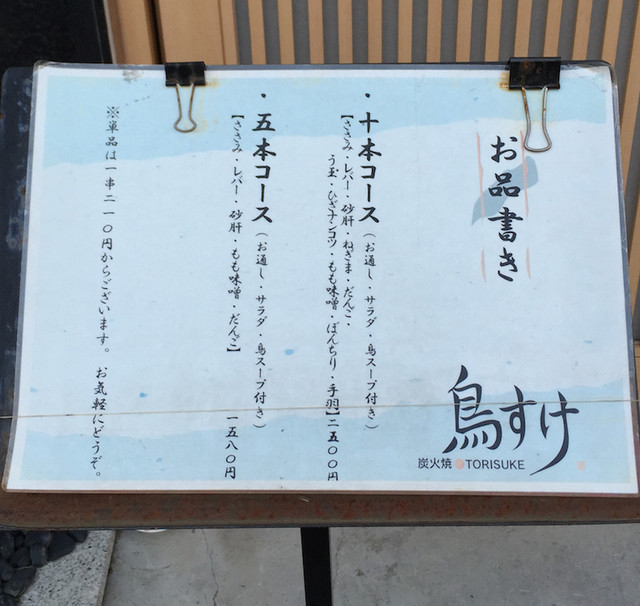 お品書き
鳥すけ
炭火焼 TORISUKE
・十本コース(お通し・サラダ・鳥スープ付き)
【ささみ・レバー・砂肝・ねぎま・だんご・
う玉・ひざナンコツ・もも味噌・ぼんちり・手羽】二五〇〇円
・五本コース(お通し・サラダ・鳥スープ付き)
【ささみ・レバー・砂肝・もも味噌・だんご】 一五八〇円
※単品は一串二一〇円からございます。 お気軽にどうぞ。